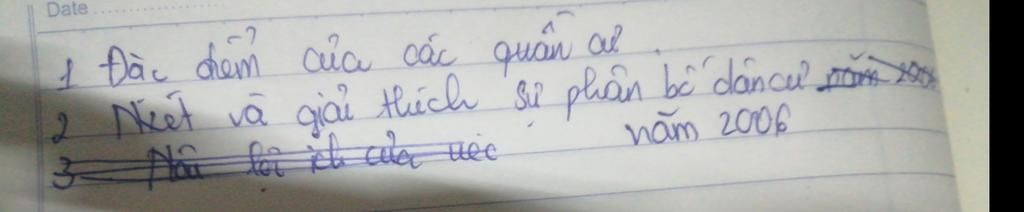 Date
1 Đặc điểm của các quần cư.
2 N.xét và giải thích sự phân bố dân cư năm 2006
năm 2006
3 Nêu lợi ích của việc